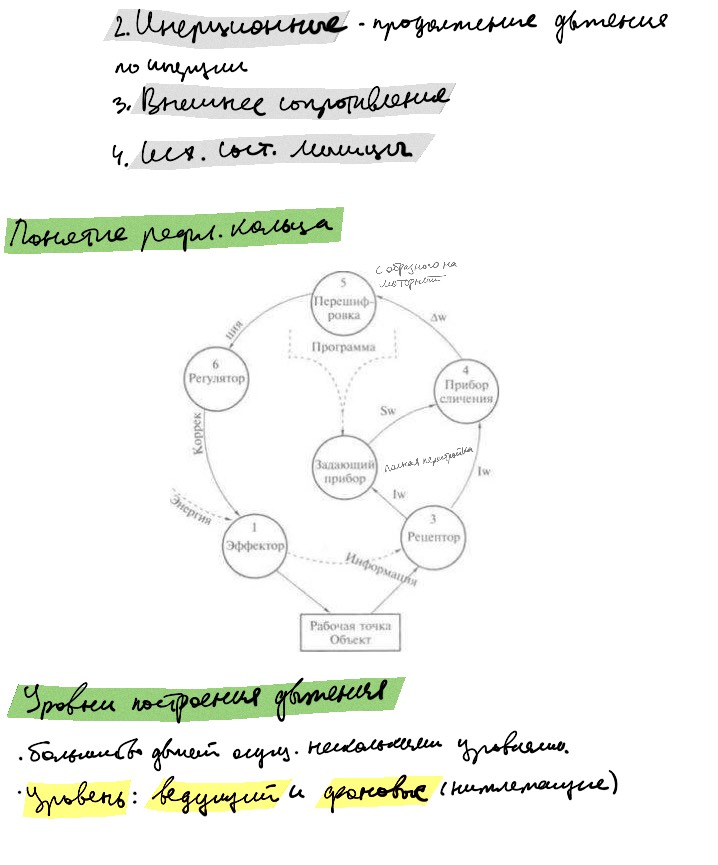 2. Инерционные - продолжение движения
по инерции
3. Внешнее сопротивления
4. Исх. сост. мышцы
Понятие рефл. кольца
с образного на
моторный
5
Перешиф-
ровка
Δw
ция
Программа
6
Регулятор
4
Прибор
сличения
Sw
Коррек
Задающий
прибор
полная перестройка
Iw
Iw
Энергия
1
Эффектор
3
Рецептор
Информация
Рабочая точка
Объект
Уровни построения движения
· большинство движ осущ. несколькими уровнями.
· Уровень: ведущий и фоновые (нижлежащие)